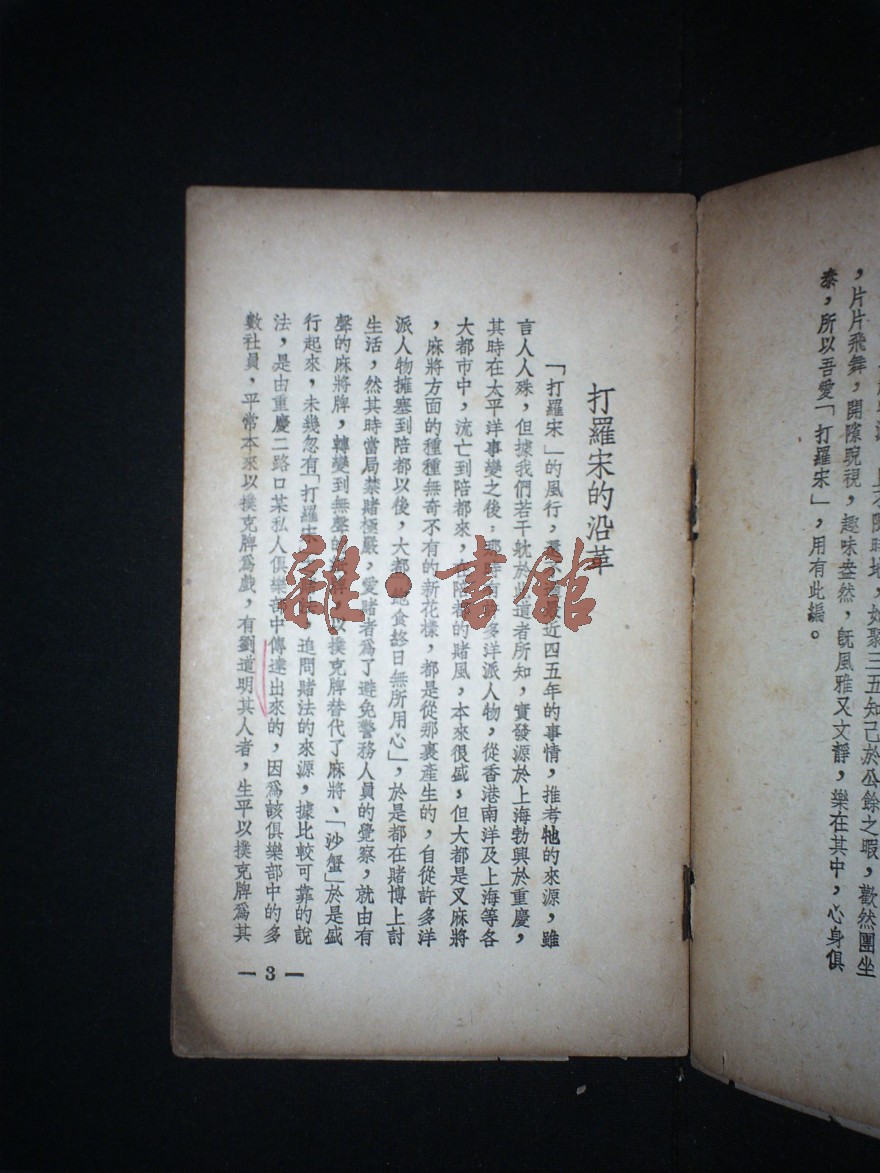 且不限時地,如聚三五知己於公餘之暇,歡然團坐
,片片飛舞,開隙睨視,趣味盎然,旣風雅又文靜,樂在其中,心身俱
泰,所以吾愛「打羅宋」,用有此編。
打羅宋的沿革
「打羅宋」的風行,最近四五年的事情,推考牠的來源,雖
言人人殊,但據我們若干躭於此道者所知,實發源於上海勃興於重慶,
其時在太平洋事變之後,那時有許多洋派人物,從香港南洋及上海等各
大都市中,流亡到陪都來,陪都的賭風,本來很盛,但大都是叉麻將
,麻將方面的種種無奇不有的新花樣,都是從那裏產生的,自從許多洋
派人物擁塞到陪都以後,大都「飽食終日無所用心」,於是都在賭博上討
生活,然其時當局禁賭極嚴,愛賭者爲了避免警務人員的覺察,就由有
聲的麻將牌,轉變到無聲的紙牌,以撲克牌替代了麻將、「沙蟹」於是盛
行起來,未幾忽有「打羅宋追問賭法的來源,據比較可靠的說
法,是由重慶二路口某私人俱樂部中傳達出來的,因爲該俱樂部中的多
數社員,平常本來以撲克牌爲戲,有劉道明其人者,生平以撲克牌爲其
— 3 —
雜·書館